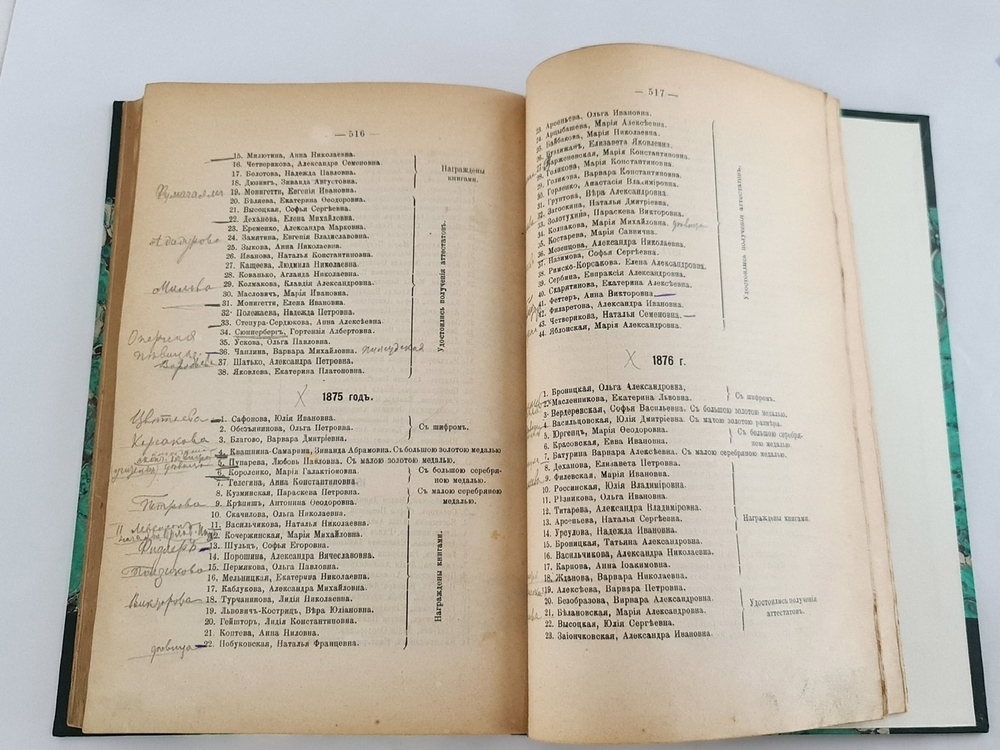 — 516 —
15. Милютина, Анна Николаевна.
16. Четверикова, Александра Семеновна.
17. Болотова, Надежда Павловна.
18. Дюзинг, Зинаида Августовна.
Награждены книгами.
19. Монигетти, Евгенія Ивановна.
20. Бѣляева, Екатерина Ѳеодоровна.
21. Высоцкая, Софья Сергѣевна.
22. Деханова, Елена Михайловна.
23. Еременко, Александра Марковна.
24. Замятина, Евгенія Владиславовна.
25. Зыкова, Анна Николаевна.
26. Иванова, Наталья Константиновна.
27. Кащеева, Людмила Николаевна.
28. Кованько, Аглаида Николаевна.
29. Колмакова, Клавдія Александровна.
30. Маслович, Марія Ивановна.
31. Монигетти, Елена Ивановна.
32. Полежаева, Надежда Петровна.
33. Стенура-Сердюкова, Анна Алексѣевна.
34. Сюннербергъ, Гортензія Албертовна.
35. Ускова, Ольга Павловна.
36. Чаплина, Варвара Михайловна.
37. Шатько, Александра Петровна.
38. Яковлева, Екатерина Платоновна.
Удостоились полученія аттестатовъ.
1875 годъ.
Цвѣтаева 1. Сафонова, Юлія Ивановна.
Корсакова 2. Обезьянинова, Ольга Петровна.
3. Благово, Варвара Дмитріевна.
Съ шифромъ.
4. Квашнина-Самарина, Зинаида Абрамовна. Съ большою золотою медалью
5. Пупарева, Любовь Павловна. Съ малою золотою медалью.
6. Короленко, Марія Галактіоновна
7. Телегина, Анна Константиновна
Съ большою серебряною медалью.
8. Кузминская, Параскева Петровна
Петрова 9. Крѣнишъ, Антонина Ѳеодоровна
Съ малою серебряною медалью.
10. Скачилова, Ольга Николаевна.
11. Васильчикова, Наталья Николаевна.
12. Кочержинская, Марія Михайловна.
13. Шульцъ, Софья Егоровна.
14. Порошина, Александра Вячеславовна.
15. Пермякова, Ольга Павловна.
16. Мельницкая, Екатерина Николаевна.
17. Каблукова, Александра Михайловна.
Викторова 18. Турчанинова, Лидія Николаевна.
19. Львович-Кострицъ, Вѣра Юліановна.
20. Гейшторъ, Лидія Константиновна.
21. Коптева, Анна Ниловна.
22. Побуковская, Наталья Францевна.
Награждены книгами.
— 517 —
23. Арсеньева, Ольга Ивановна.
24. Арцыбашева, Марія Алексѣевна.
25. Байбакова, Марія Николаевна.
Елизавета Яковлевна.
Марія Константиновна.
28. Голикова, Марія Константиновна.
29. Голикова, Варвара Константиновна.
30. Горленко, Анастасія Владиміровна.
31. Грунтова, Вѣра Александровна.
32. Загоскина, Наталья Дмитріевна.
33. Золотухина, Параскева Викторовна.
34. Колпакова, Марія Михайловна.
35. Костарева, Марія Саввична.
36. Мезенцова, Александра Николаевна.
37. Назимова, Софья Сергѣевна.
38. Римско-Корсакова, Елена Александровна.
39. Сербина, Евпраксія Александровна.
40. Скарятинова, Екатерина Алексѣевна.
41. Феттеръ, Анна Викторовна.
42. Филаретова, Александра Ивановна.
43. Четверикова, Наталья Семеновна.
44. Яблонская, Марія Александровна.
Удостоились полученія аттестатовъ.
1876 г.
1. Броницкая, Ольга Александровна,
2. Масленникова, Екатерина Львовна.
Съ шифромъ.
3. Вердеревская, Софья Васильевна. Съ большою золотою медалью.
4. Васильцовская, Ольга Дмитріевна. Съ малою золотою размѣра.
5. Юргенцъ, Марія Ѳеодоровна.
6. Красовская, Евва Ивановна.
Съ большою серебряною медалью.
7. Батурина Варвара Алексѣевна. Съ малою серебряною медалью.
8. Деханова, Елизавета Петровна.
9. Филевская, Марія Ивановна.
10. Россинская, Юлія Владиміровна.
11. Рѣзникова, Ольга Ивановна.
12. Титарева, Александра Владиміровна.
13. Арсеньева, Наталья Сергѣевна.
14. Уроулова, Надежда Ивановна.
15. Броницкая, Татьяна Александровна.
16. Васильчикова, Александра Николаевна.
17. Карнова, Анна Іоакимовна.
Награждены книгами.
18. Жданова, Варвара Николаевна.
19. Алексѣева, Варвара Петровна.
20. Безобразова, Варвара Александровна.
21. Бѣлановская, Марія Александровна.
22. Высоцкая, Юлія Сергѣевна.
23. Заіончковская, Александра Ивановна.
Удостоились полученія аттестатовъ.